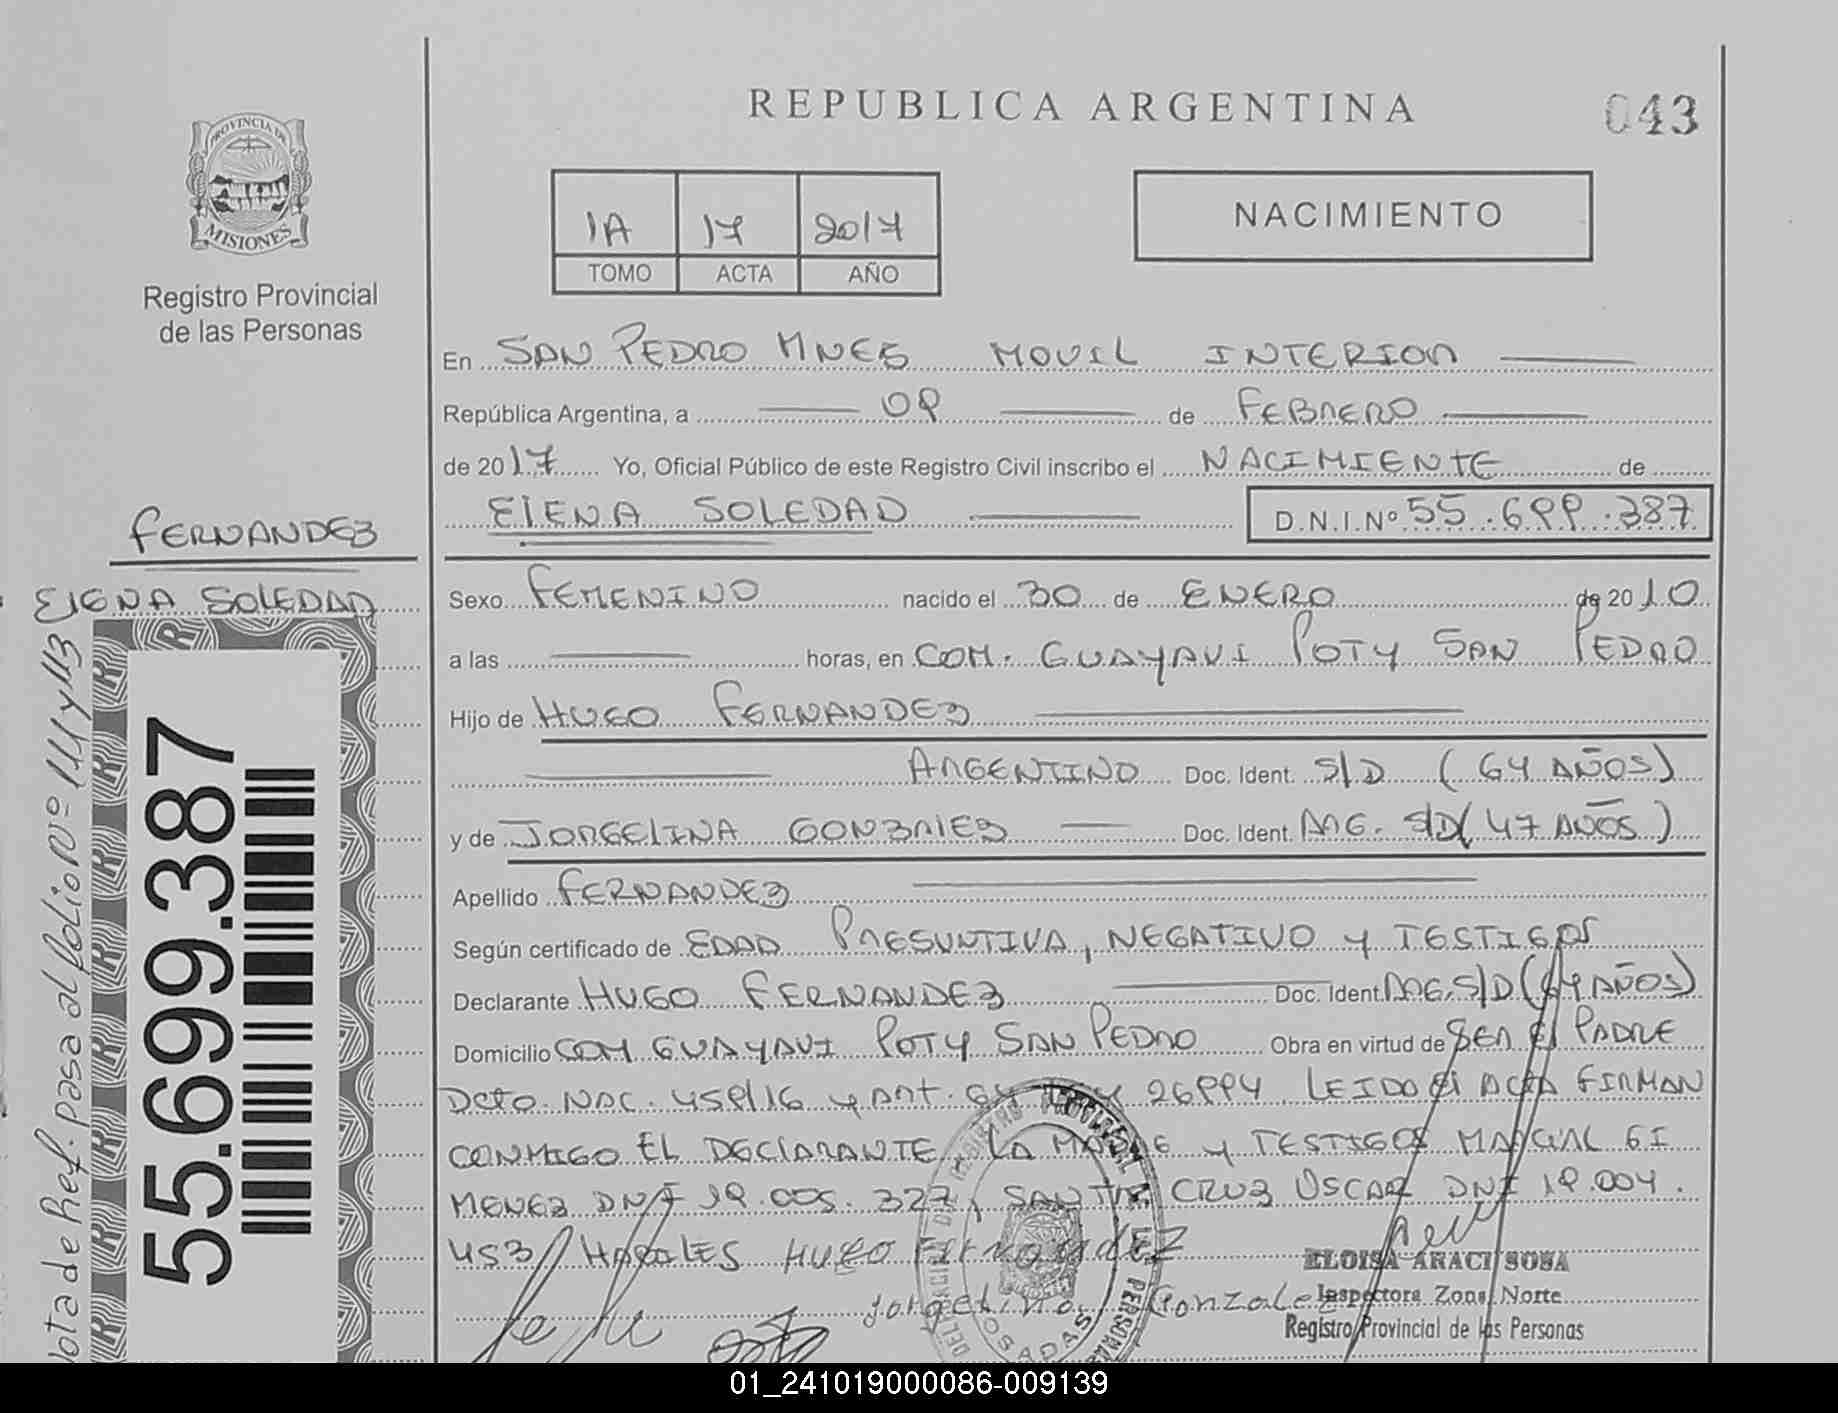 REPUBLICA ARGENTINA
043
PROVINCIA DE
MISIONES
Registro Provincial
de las Personas
1A 17 2017
TOMO ACTA AÑO
NACIMIENTO
En SAN PEDRO MNES MOVIL INTERIOR
República Argentina, a 09 de FEBRERO
de 2017 Yo, Oficial Público de este Registro Civil inscribo el NACIMIENTE de
ELENA SOLEDAD D.N.I.Nº 55.699.387
FERNANDEZ
ELENA SOLEDAD
Sexo FEMENINO nacido el 30 de ENERO de 2010
a las horas, en COM. GUAYAVI POTY SAN PEDRO
Hijo de HUGO FERNANDEZ
ARGENTINO Doc. Ident. S/D (64 AÑOS)
y de JORGELINA GONZALEZ Doc. Ident. ARG. S/D (47 AÑOS)
Apellido FERNANDEZ
Según certificado de EDAD PRESUNTIVA, NEGATIVO y TESTIGOS
Declarante HUGO FERNANDEZ Doc. Ident. ARG. S/D (64 AÑOS)
Domicilio COM GUAYAVI POTY SAN PEDRO Obra en virtud de SER EL PADRE
Dcto. NAC. 459/16 y ART. 94 LEY 26994 LEIDO El ACTA FIRMAN
CONMIGO EL DECLARANTE, LA MADRE y TESTIGOS MARCIAL GI
MENEZ DNI 19.005.327, SANTA CRUZ OSCAR DNI 19.004.
453 HUGO FERNANDEZ
Jorgelina Gonzalez
ELOISA ARACI SOSA
Inspectora Zona Norte
Registro Provincial de las Personas
POSADAS
55.699.387
Nota de Ref. pasa al folio Nº 111 y 113
01_241019000086-009139